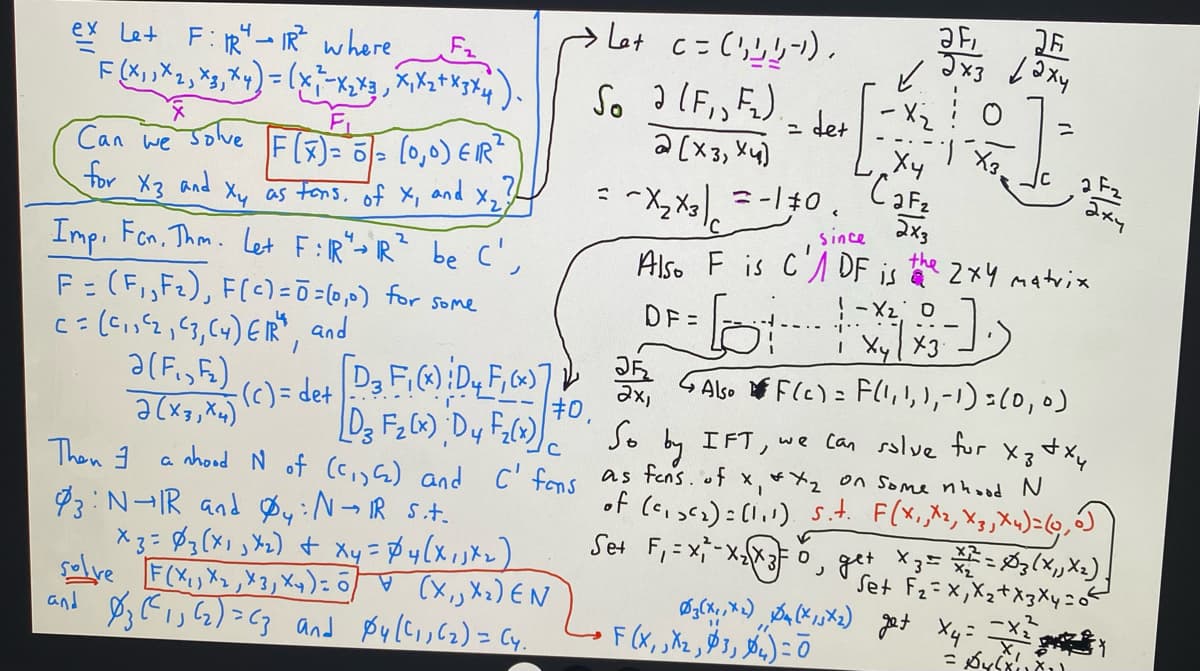 ex Let F: ℝ⁴→ℝ² where
F₂
F(x₁,x₂,x₃,x₄)=(x₁²-x₂x₃, x₁x₂+x₃x₄).
x̄ F₁
Can we solve F(x̄)=ō=(0,0)∈ℝ²
for x₃ and x₄ as fcns. of x₁ and x₂?
Imp. Fcn. Thm. Let F:ℝ⁴→ℝ² be C',
F=(F₁,F₂), F(c)=ō=(0,0) for some
c=(c₁,c₂,c₃,c₄)∈ℝ⁴, and
∂(F₁,F₂)/∂(x₃,x₄) (c)= det [D₃F₁(x) D₄F₁(x)
D₃F₂(x) D₄F₂(x)]c ≠0.
Then ∃ a nhood N of (c₁,c₂) and C' fcns
Ø₃:N→ℝ and Ø₄:N→ℝ s.t.
x₃=Ø₃(x₁,x₂) & x₄=Ø₄(x₁,x₂)
solve F(x₁,x₂,x₃,x₄)=ō ∀ (x₁,x₂)∈N
and Ø₃(c₁,c₂)=c₃ and Ø₄(c₁,c₂)=c₄.
→ Let c=(1,1,1,-1).
∂F₁/∂x₃ ∂F₁/∂x₄
So ∂(F₁,F₂)/∂(x₃,x₄) = det [-x₂ 0
x₄ x₃]c =
∂F₂/∂x₃ ∂F₂/∂x₄
= -x₂x₃|c = -1≠0.
Also F is C' since DF is the 2x4 matrix
DF = [ -x₂ 0
x₄ x₃ ].
∂F₂/∂x₁
Also F(c)=F(1,1,1,-1)=(0,0)
So by IFT, we can solve for x₃ & x₄
as fcns. of x₁ & x₂ on some nhood N
of (c₁,c₂)=(1,1) s.t. F(x₁,x₂,x₃,x₄)=(0,0)
Set F₁=x₁²-x₂x₃=0, get x₃=x₁²/x₂=Ø₃(x₁,x₂)
Set F₂=x₁x₂+x₃x₄=0
Ø₃(x₁,x₂) Ø₄(x₁,x₂) get x₄=-x₂²/x₁
F(x₁,x₂,Ø₃,Ø₄)=ō
=Ø₄(x₁,x₂)